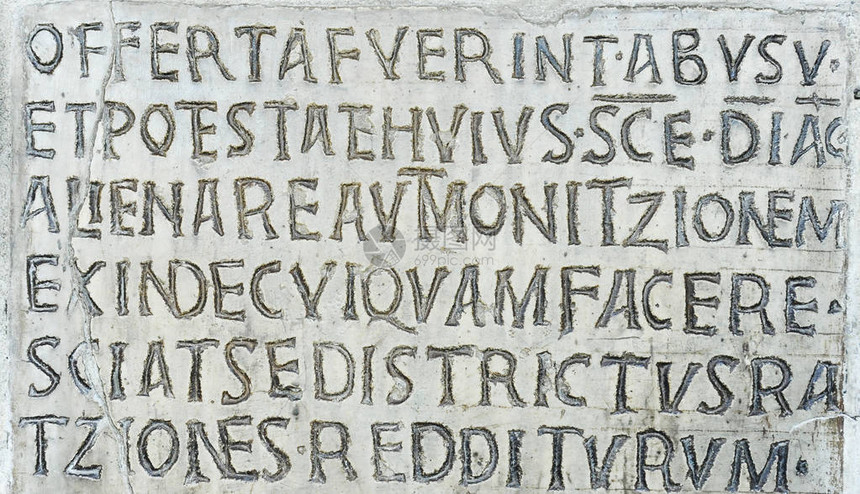 OFFERTAFVERINT·ABVSV·
ETPOTESTAEHVIVS·SCE·DIAC
ALIENAREAVTMONITZIONEM
EXINDECVIQVAMFACERE·
SCIATSEDISTRICTVSRA
TZIONES·REDDITVRVM·
摄图网
699pic.com